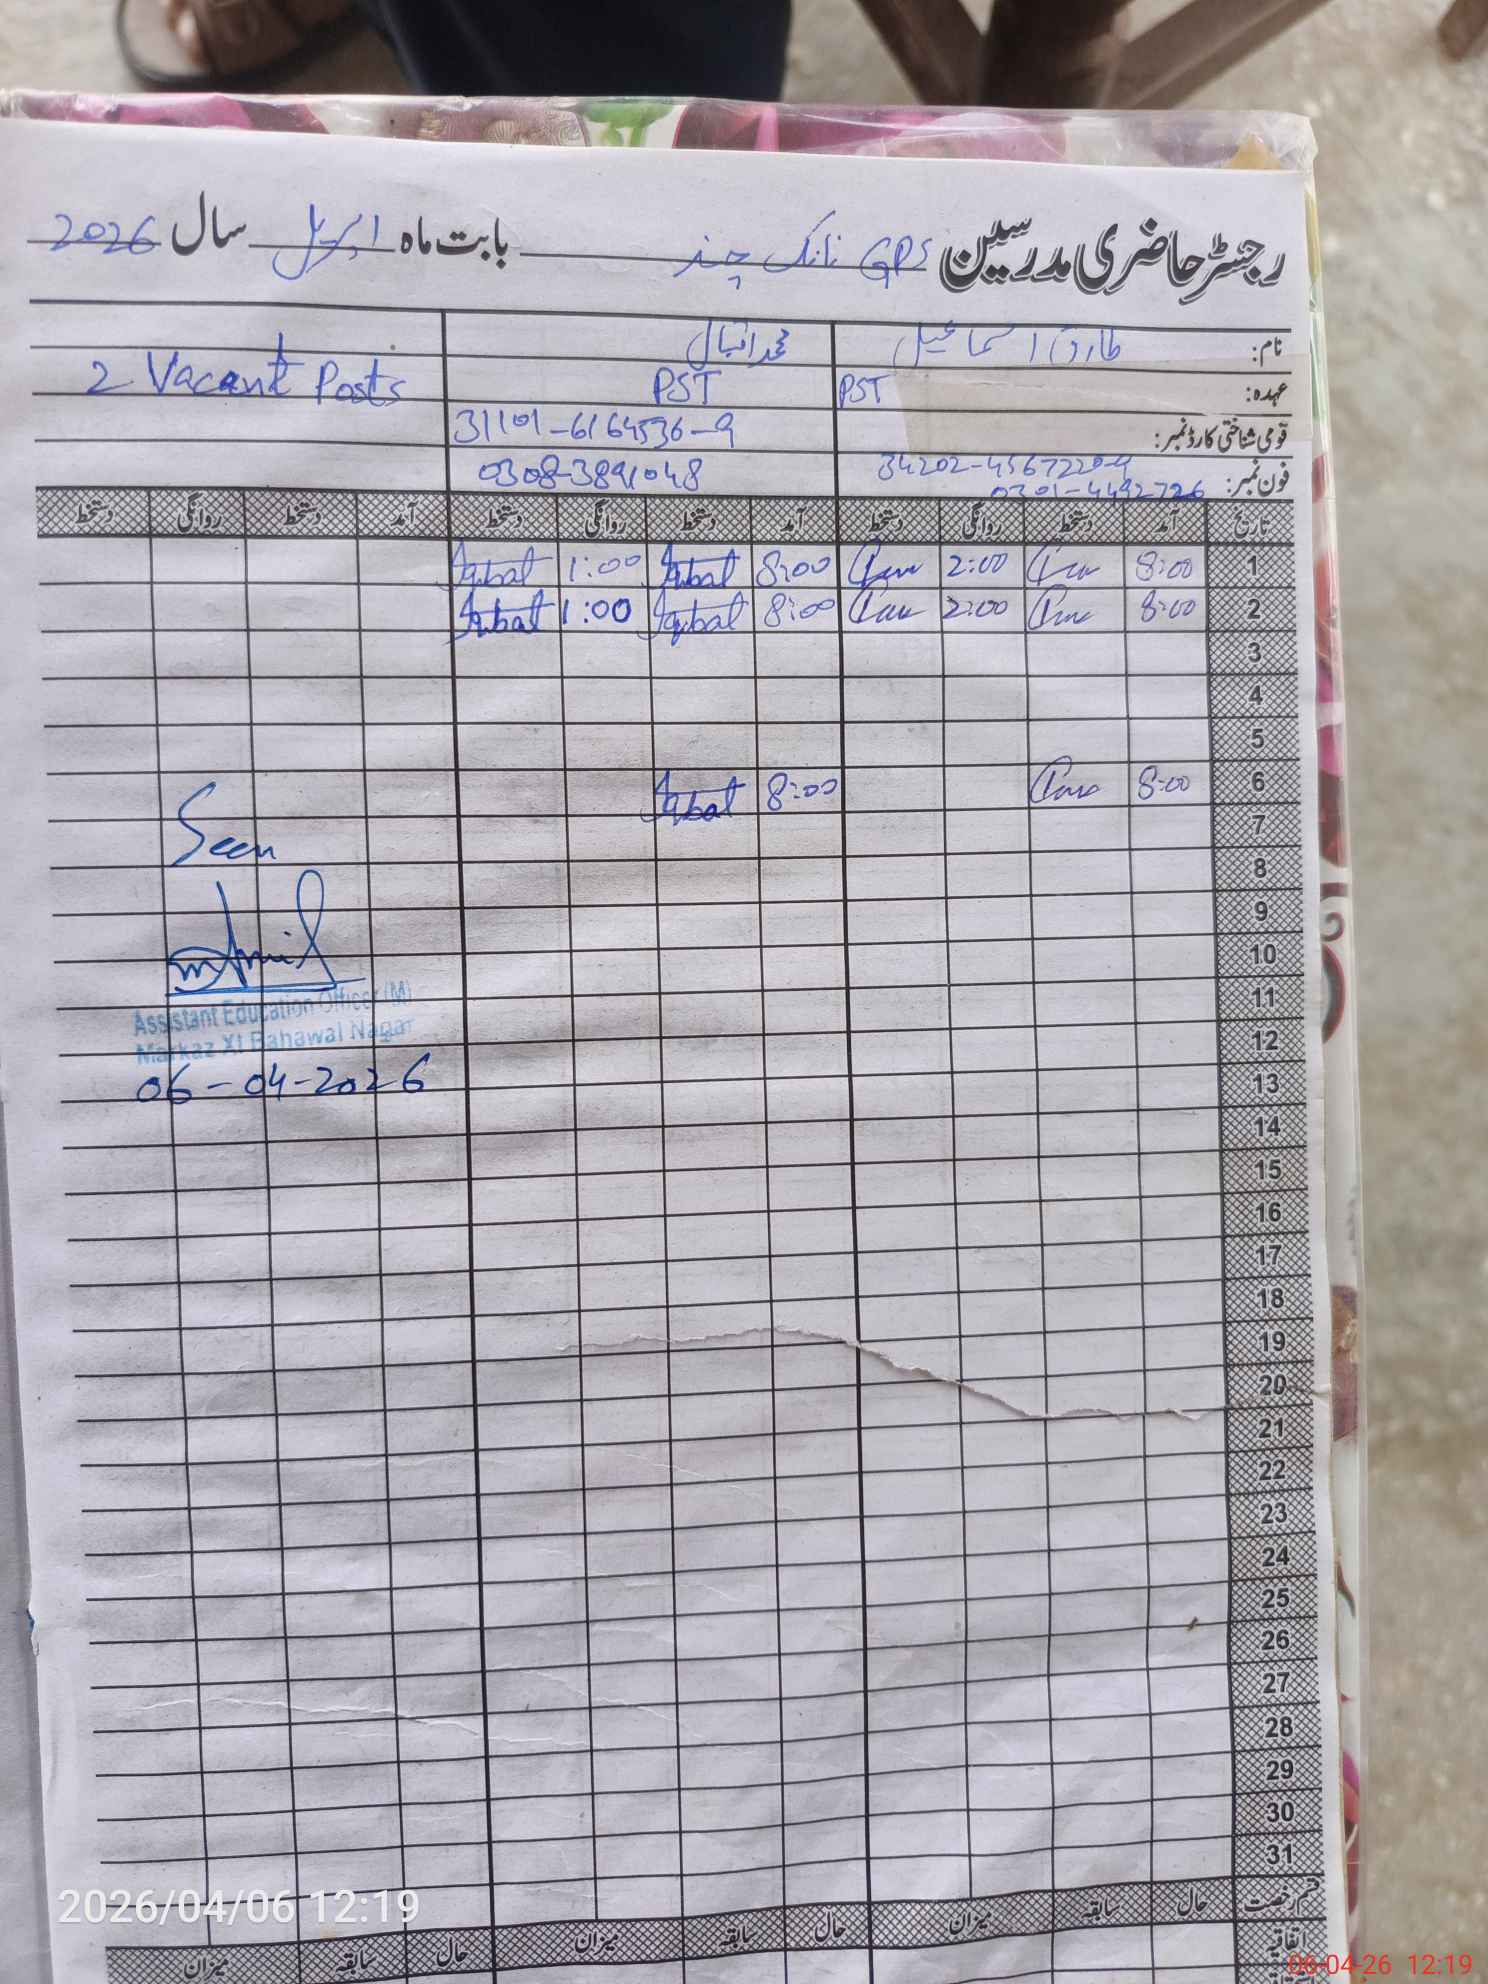 رجسٹر حاضری مدرسین GPS نانک چند بابت ماہ اپریل سال 2026
نام: طارق اسماعیل محمد اقبال
عہدہ: PST PST 2 Vacant Posts
قومی شناختی کارڈ نمبر: 34202-4567220-9 31101-6164536-9
فون نمبر: 0301-4492726 0308-3891048
تاریخ آمد دستخط روانگی دستخط آمد دستخط روانگی دستخط آمد دستخط روانگی دستخط
1 8:00 2:00 8:00 Iqbal 1:00 Iqbal
2 8:00 2:00 8:00 Iqbal 1:00 Iqbal
3
4
5
6 8:00 8:00 Iqbal
7
Seen
8
9
10
11
Assistant Education Officer (M)
12
Markaz XI Bahawal Nagar
13
06-04-2026
14
15
16
17
18
19
20
21
22
23
24
25
26
27
28
29
30
31
قسم رخصت حال سابقہ میزان حال سابقہ میزان حال سابقہ میزان
اتفاقیہ
2026/04/06 12:19
06-04-26 12:19